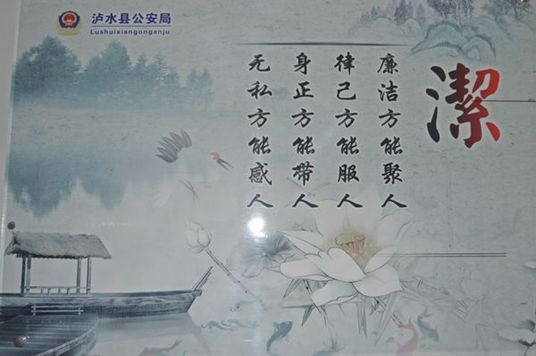 泸水县公安局
Lushuixiangonganju
潔
廉洁方能聚人
律己方能服人
身正方能带人
无私方能感人